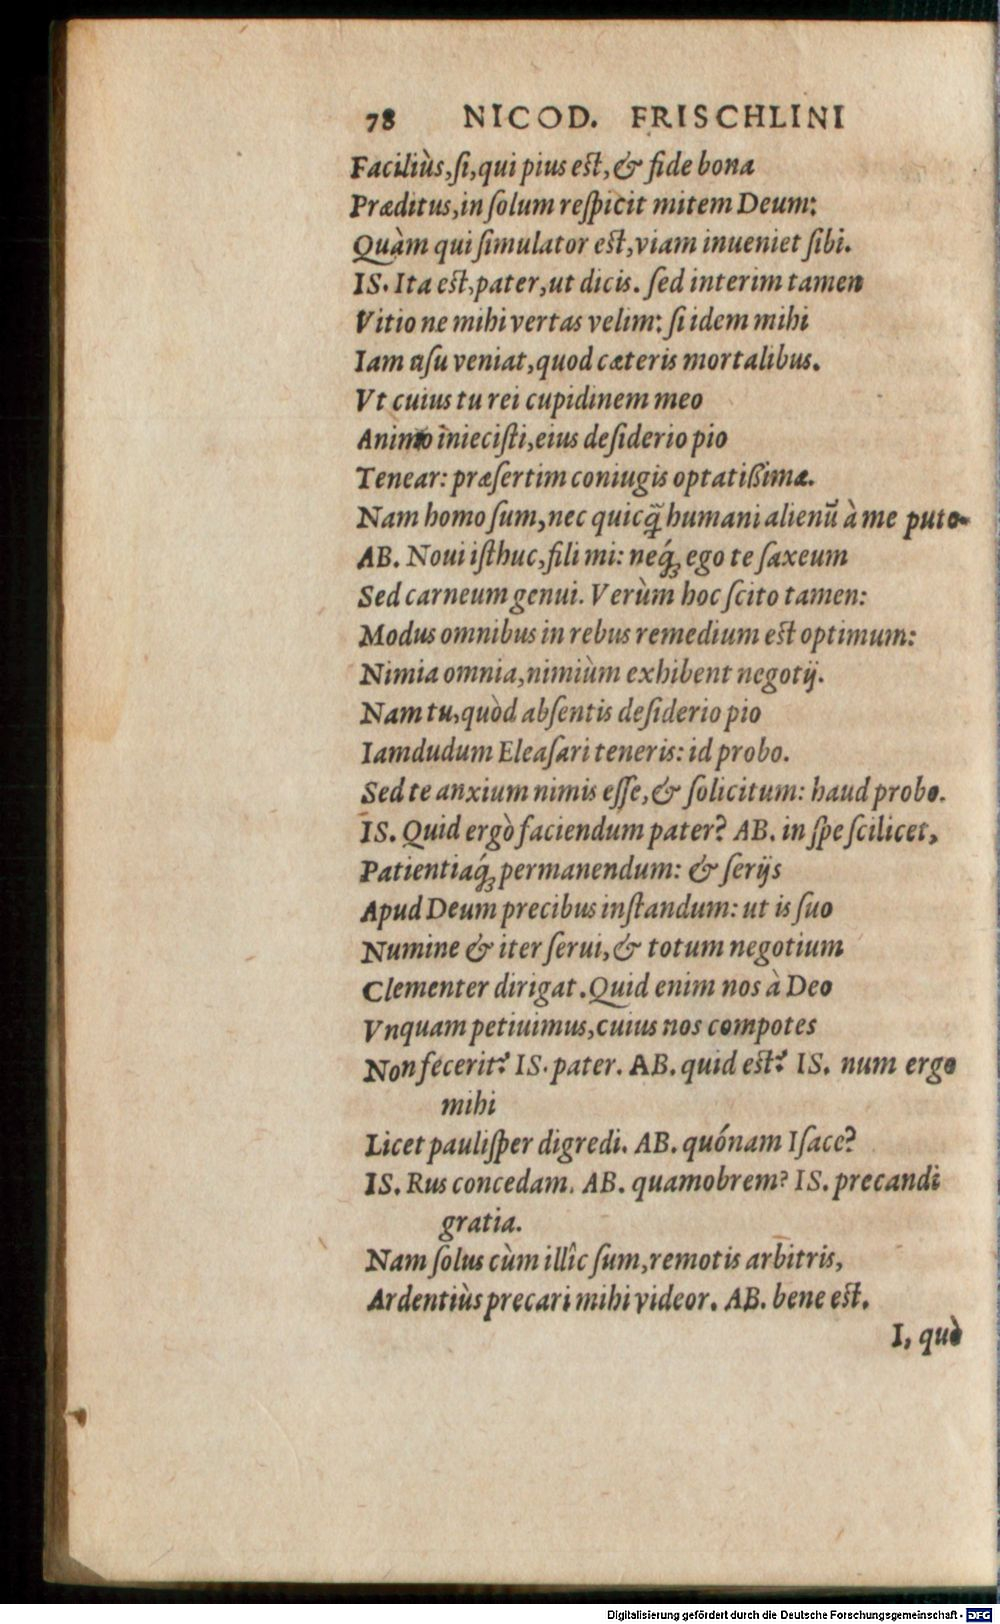 78 NICOD. FRISCHLINI
Faciliùs, ſi, qui pius eſt, & fide bona
Præditus, in ſolum reſpicit mitem Deum:
Quàm qui ſimulator eſt, viam inueniet ſibi.
IS. Ita eſt, pater, ut dicis. ſed interim tamen
Vitio ne mihi vertas velim: ſi idem mihi
Iam uſu veniat, quod cæteris mortalibus.
Vt cuius tu rei cupidinem meo
Animo iniecisti, eius deſiderio pio
Tenear: præſertim coniugis optatißimæ.
Nam homo ſum, nec quicq̃ humani alienũ à me puto.
AB. Noui iſthuc, fili mi: neq́; ego te ſaxeum
Sed carneum genui. Verùm hoc ſcito tamen:
Modus omnibus in rebus remedium eſt optimum:
Nimia omnia, nimiùm exhibent negotij.
Nam tu, quòd abſentis deſiderio pio
Iamdudum Eleaſari teneris: id probo.
Sed te anxium nimis eſſe, & ſolicitum: haud probo.
IS. Quid ergò faciendum pater? AB. in ſpe ſcilicet,
Patientiaq́; permanendum: & ſerijs
Apud Deum precibus inſtandum: ut is ſuo
Numine & iter ſerui, & totum negotium
Clementer dirigat. Quid enim nos à Deo
Vnquam petiuimus, cuius nos compotes
Non fecerit? IS. pater. AB. quid eſt? IS. num ergo
mihi
Licet pauliſper digredi. AB. quónam Iſace?
IS. Rus concedam. AB. quamobrem? IS. precandi
gratia.
Nam ſolus cùm illîc ſum, remotis arbitris,
Ardentiùs precari mihi videor. AB. bene eſt.
I, quò
Digitalisierung gefördert durch die Deutsche Forschungsgemeinschaft - DFG